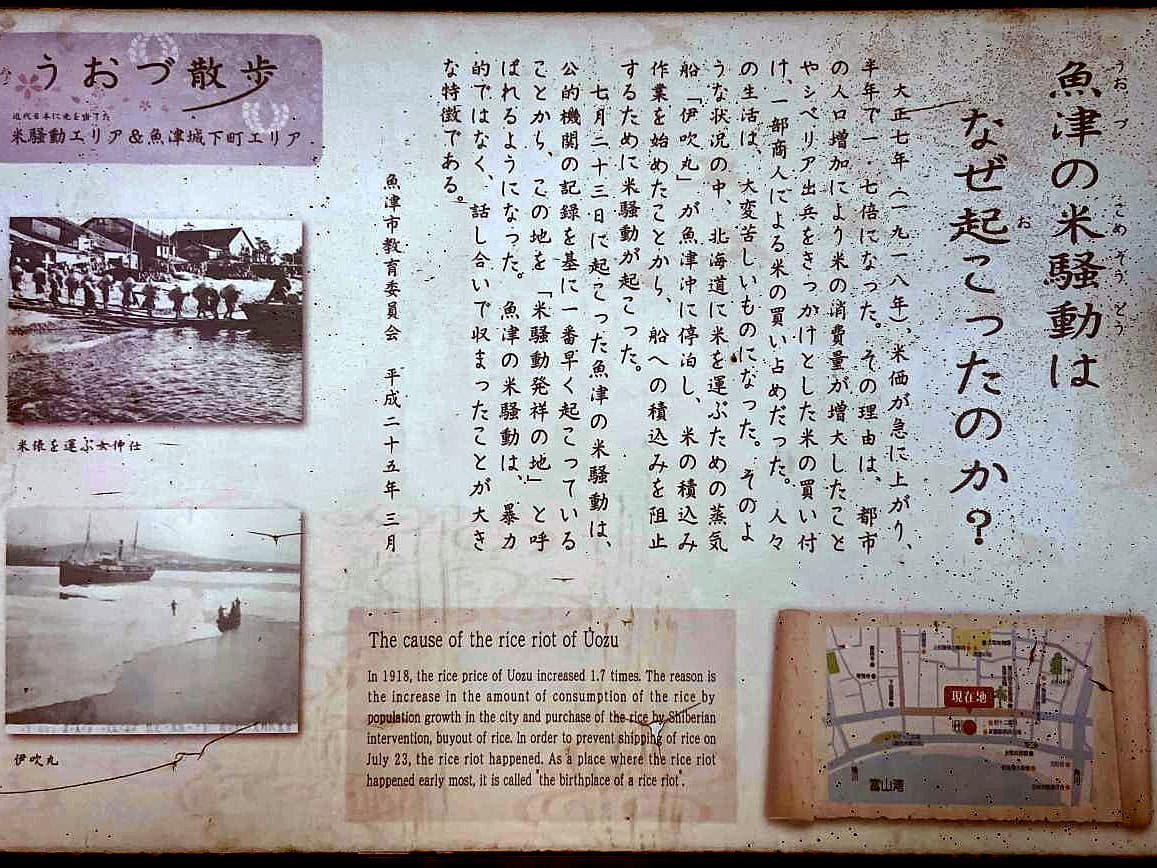 魚津の米騒動は
うおづ
こめそうどう
なぜ起こったのか?
お
大正七年(一九一八年)、米価が急に上がり、
半年で一・七倍になった。その理由は、都市
の人口増加により米の消費量が増大したこと
やシベリア出兵をきっかけとした米の買い付
け、一部商人による米の買い占めだった。人々
の生活は、大変苦しいものになった。そのよ
うな状況の中、北海道に米を運ぶための蒸気
船「伊吹丸」が魚津沖に停泊し、米の積込み
作業を始めたことから、船への積込みを阻止
するために米騒動が起こった。
七月二十三日に起こった魚津の米騒動は、
公的機関の記録を基に一番早く起こっている
ことから、この地を「米騒動発祥の地」と呼
ばれるようになった。魚津の米騒動は、暴力
的ではなく、話し合いで収まったことが大き
な特徴である。
魚津市教育委員会 平成二十五年 三月
うおづ散歩
近代日本に光を当てた
米騒動エリア&魚津城下町エリア
米俵を運ぶ女仲仕
伊吹丸
The cause of the rice riot of Uozu
In 1918, the rice price of Uozu increased 1.7 times. The reason is
the increase in the amount of consumption of the rice by
population growth in the city and purchase of the rice by Shiberian
intervention, buyout of rice. In order to prevent shipping of rice on
July 23, the rice riot happened. As a place where the rice riot
happened early most, it is called "the birthplace of a rice riot".
現在地
富山湾